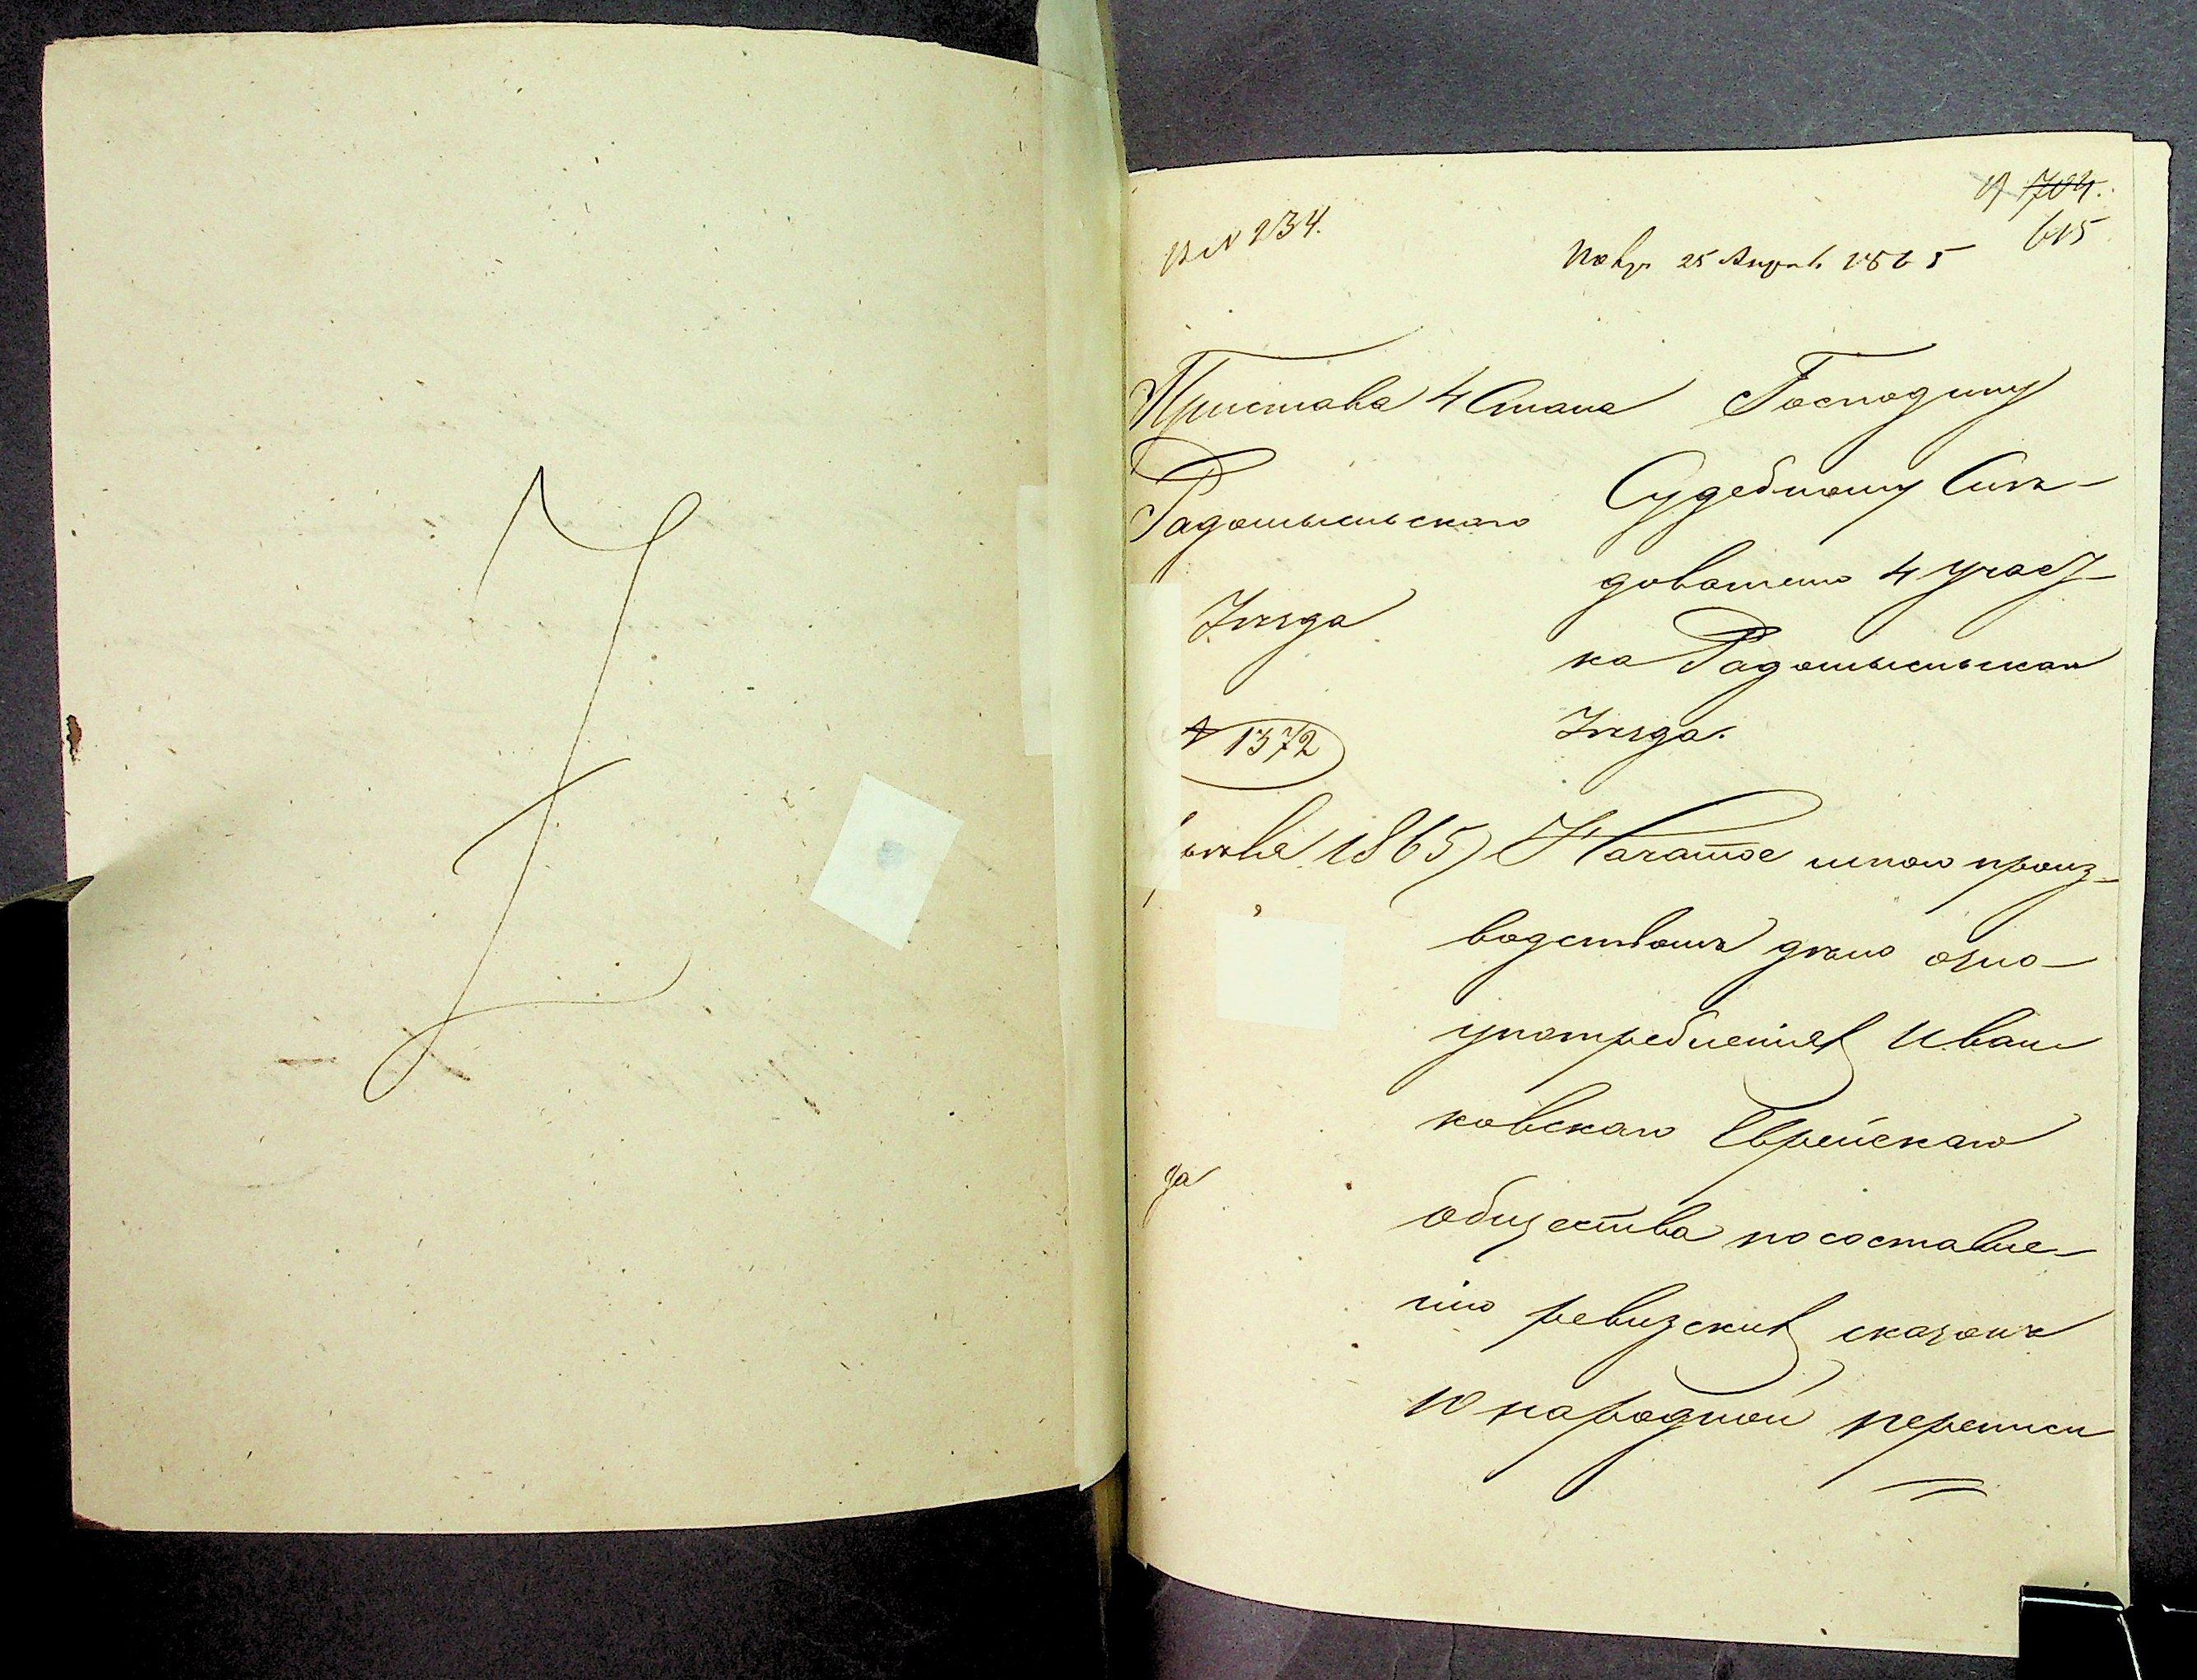 704.
615
№ 234.
25 Апрѣля 1865
Пристава 4 Стана
Радомысльскаго
Уѣзда
№ 1372
1865
да
Господину
Судебному Слѣ-
дователю 4 участ-
ка Радомысльскаго
Уѣзда.
Начатое мною произ-
водствомъ дѣло о зло-
употребленіях Иван
ковскаго Еврейскаго
общества по составле-
нію ревизских сказокъ
10 народной переписи